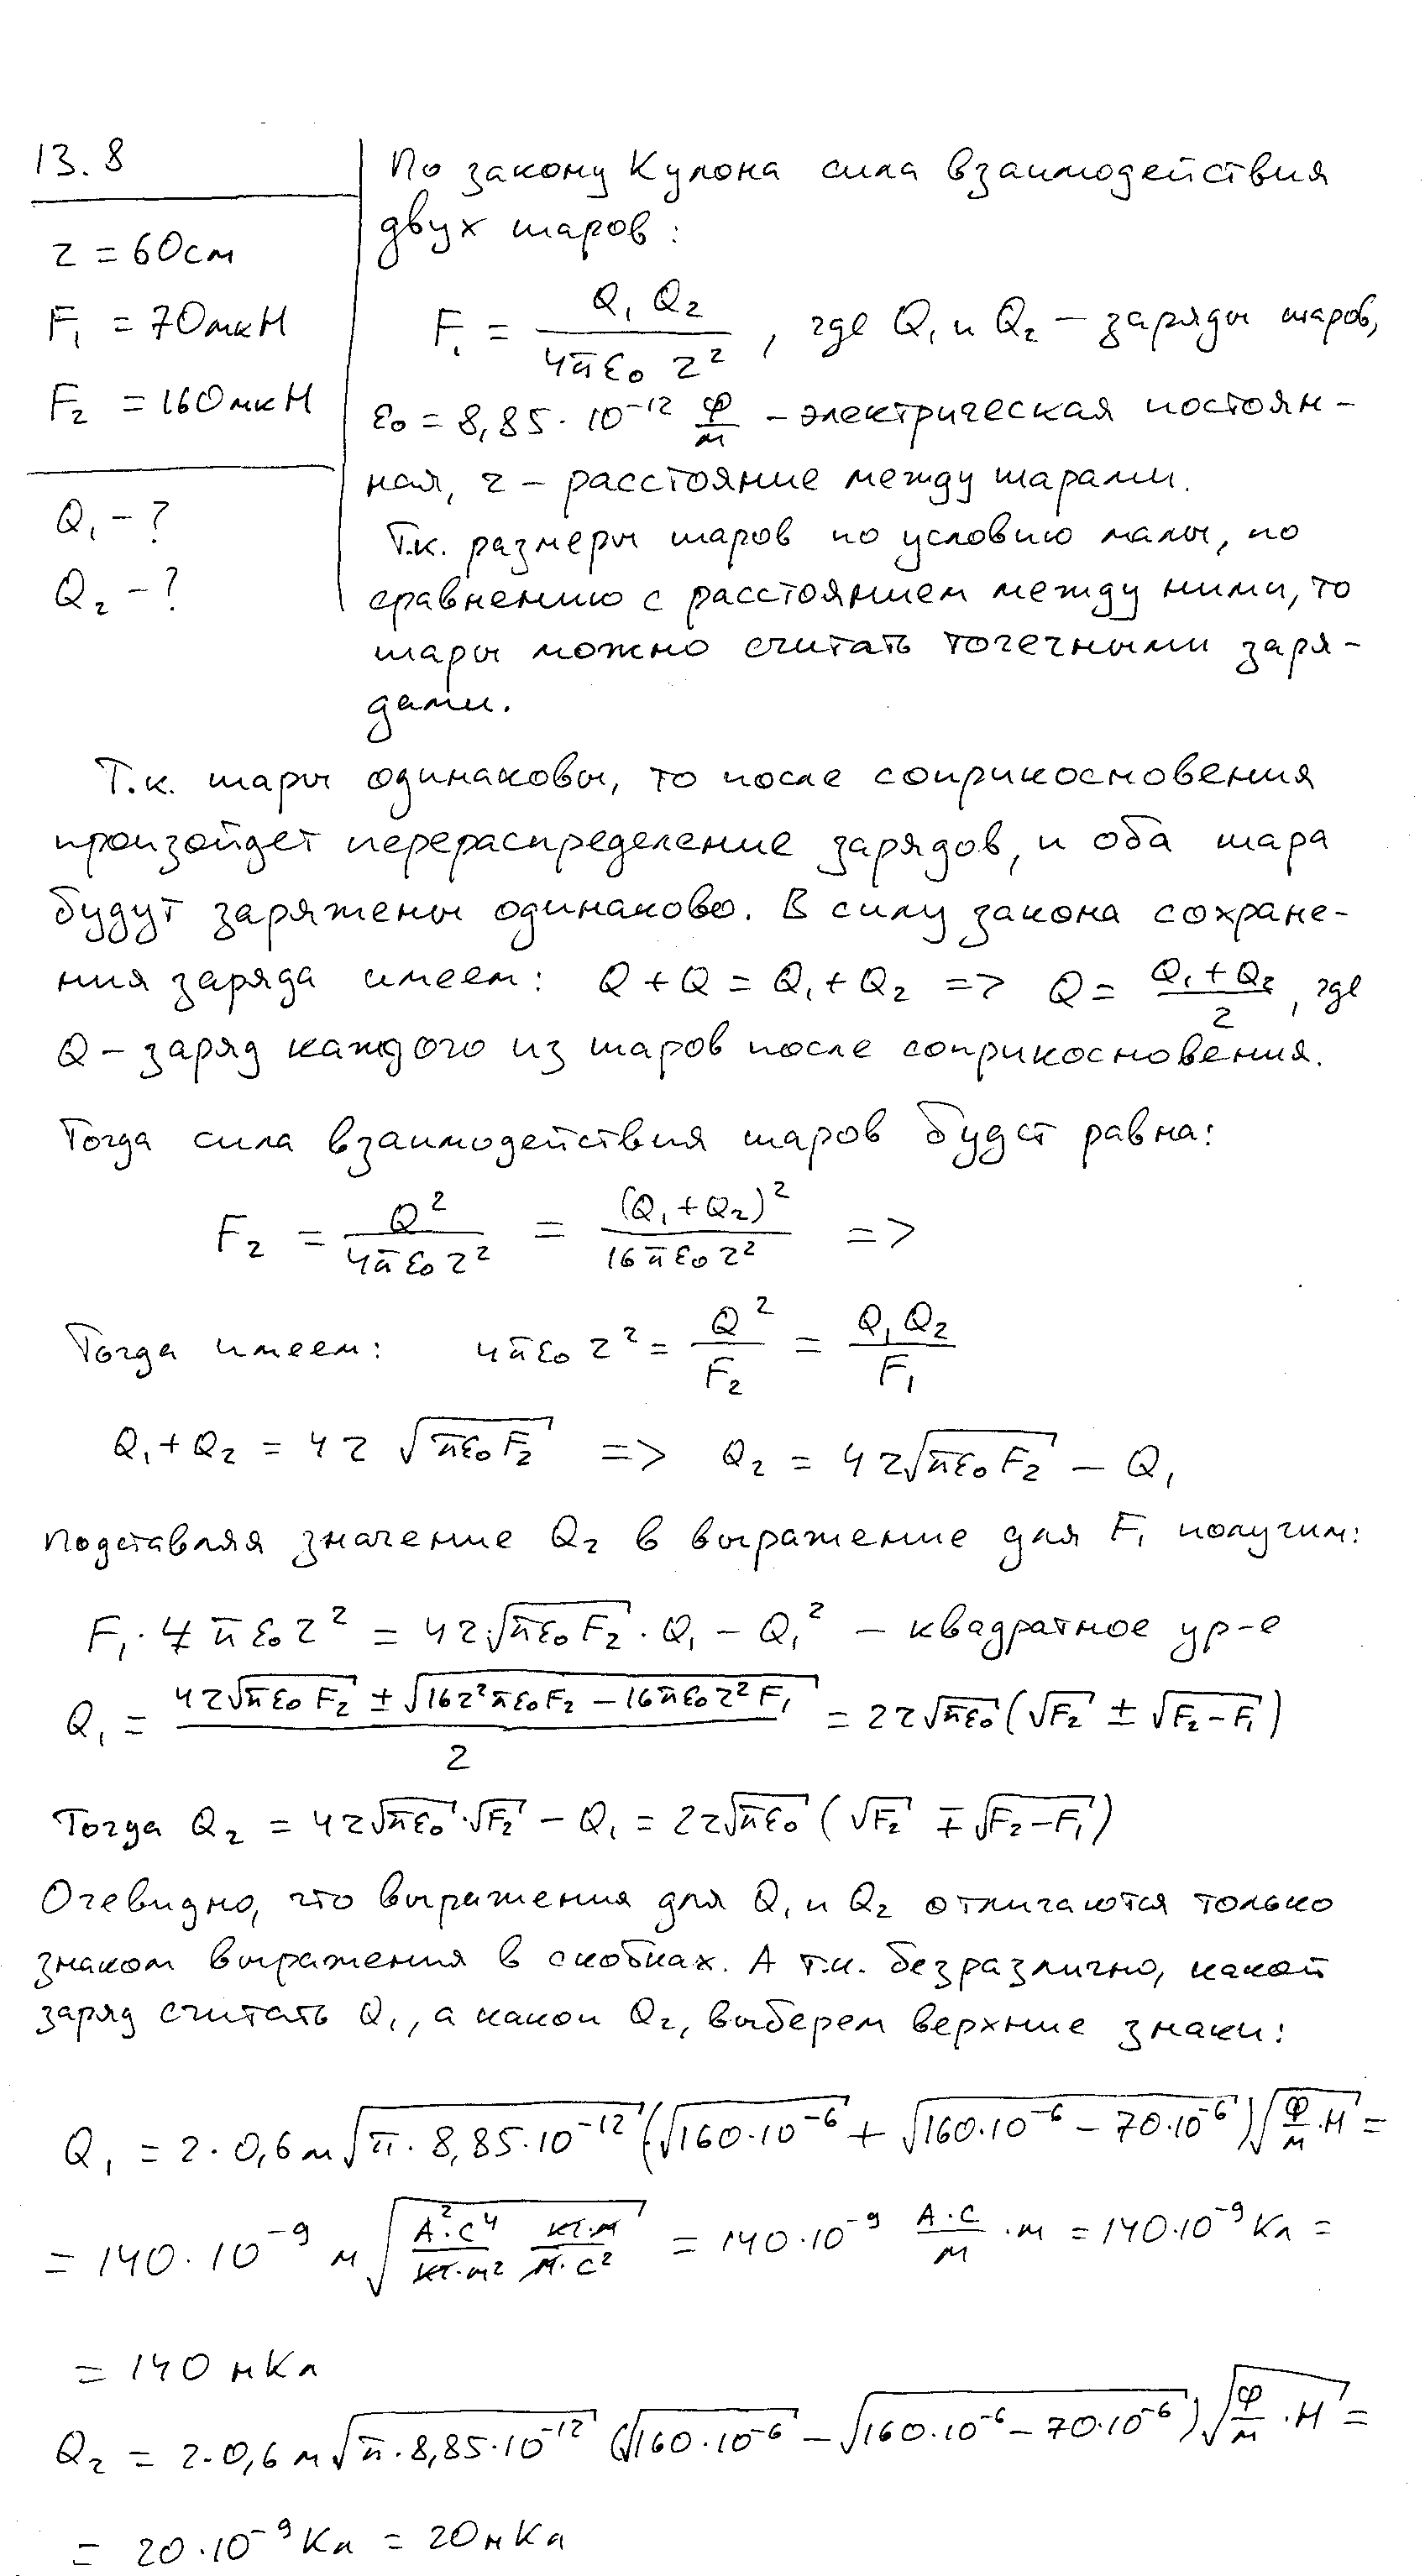 13.8
r = 60см
F₁ = 70мкН
F₂ = 160мкН
Q₁ – ?
Q₂ – ?
По закону Кулона сила взаимодействия
двух шаров:
F₁ = Q₁ Q₂ / 4πε₀ r² , где Q₁ и Q₂ – заряды шаров,
ε₀ = 8,85·10⁻¹² Ф/м – электрическая постоян-
ная, r – расстояние между шарами.
Т.к. размеры шаров по условию малы, по
сравнению с расстоянием между ними, то
шары можно считать точечными заря-
дами.
Т.к. шары одинаковы, то после соприкосновения
произойдет перераспределение зарядов, и оба шара
будут заряжены одинаково. В силу закона сохране-
ния заряда имеем: Q + Q = Q₁ + Q₂ => Q = (Q₁ + Q₂)/2, где
Q – заряд каждого из шаров после соприкосновения.
Тогда сила взаимодействия шаров будет равна:
F₂ = Q² / 4πε₀ r² = (Q₁ + Q₂)² / 16πε₀ r² =>
Тогда имеем: 4πε₀ r² = Q²/F₂ = Q₁ Q₂/F₁
Q₁ + Q₂ = 4r √(πε₀ F₂) => Q₂ = 4r√(πε₀ F₂) – Q₁
Подставляя значение Q₂ в выражение для F₁ получим:
F₁ · 4πε₀ r² = 4r√(πε₀ F₂) · Q₁ – Q₁² – квадратное ур-е
Q₁ = (4r√(πε₀ F₂) ± √(16r²πε₀F₂ – 16πε₀ r² F₁)) / 2 = 2r√(πε₀) (√F₂ ± √(F₂ – F₁))
Тогда Q₂ = 4r√(πε₀) · √F₂ – Q₁ = 2r√(πε₀) (√F₂ ∓ √(F₂ – F₁))
Очевидно, что выражения для Q₁ и Q₂ отличаются только
знаком выражения в скобках. А т.к. безразлично, какой
заряд считать Q₁, а какой Q₂, выберем верхние знаки:
Q₁ = 2·0,6 м √(π·8,85·10⁻¹²) (√(160·10⁻⁶) + √(160·10⁻⁶ – 70·10⁻⁶)) √(Ф/м · Н) =
= 140·10⁻⁹ м √(А²·с⁴/кг·м² кг·м/м·с²) = 140·10⁻⁹ А·с/м · м = 140·10⁻⁹ Кл =
= 140 нКл
Q₂ = 2·0,6 м √(π·8,85·10⁻¹²) (√(160·10⁻⁶) – √(160·10⁻⁶ – 70·10⁻⁶)) √(Ф/м · Н) =
= 20·10⁻⁹ Кл = 20нКл